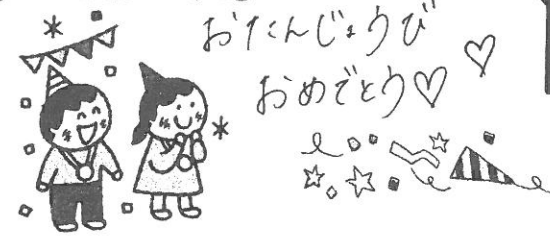 おたんじょうび
おめでとう♡ ♡